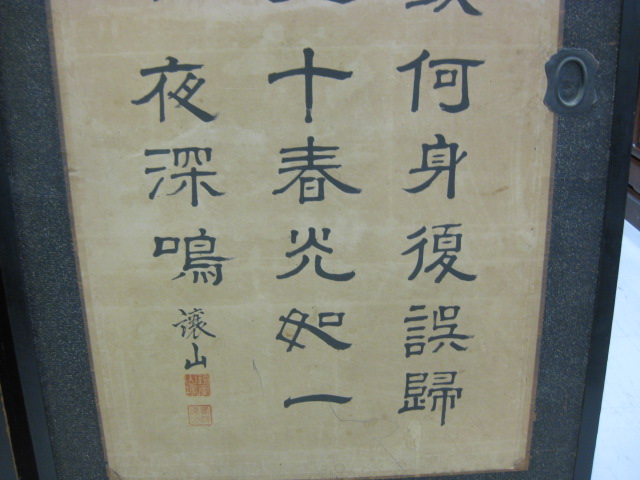 何身復誤歸
十春光如一
夜深鳴
讓山